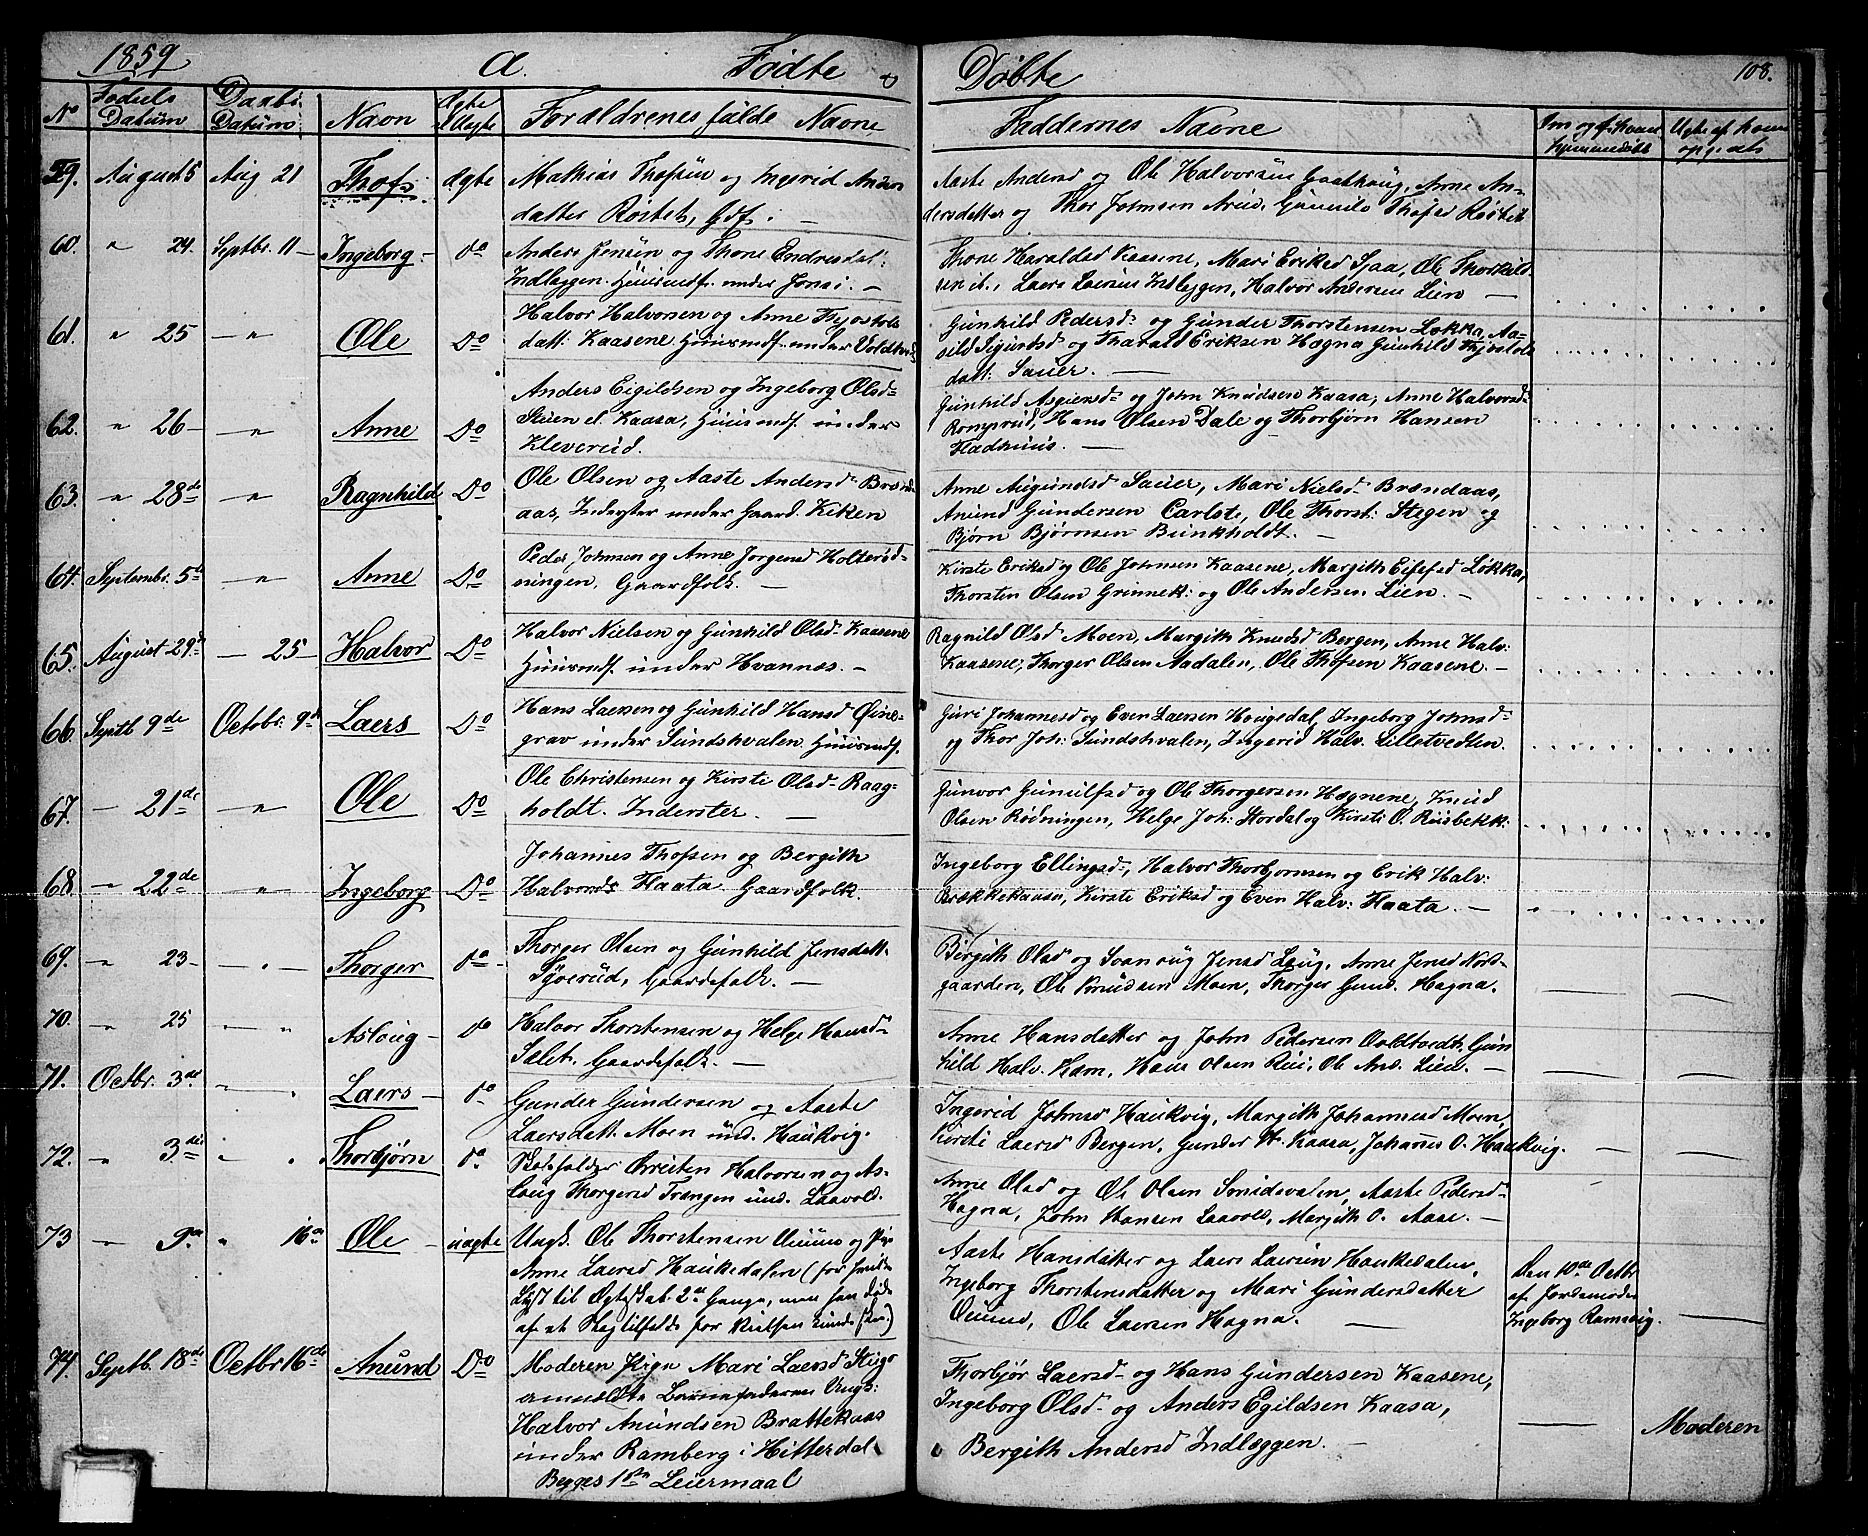 1859 A. Fødte & Døbte 108.
No Fødsels Datum Daabs Datum Navn Ægte el. Uægte Forældrenes fulde Navne Faddernes Navne
59. August 5 Aug 21 Thofs ægte Mathias Thofsen og Ingrid Anders
datter Røstet, Gdf. Aaste Andersd og Ole Halvorsen Gaathaug, Anne An-
dersdatter og Thor Johnsen Gunnild Thofsd Røstet
60. " 24. Septbr. 11 Ingeborg Do Anders Jensen og Thone Endresdat:
Indlæggen. Huusmdf. under Jonsi.
Thone Haraldsd Kaasene, Mari Eriksd Sjaa, Ole Thorkild
sen ib., Laers Laersen Indlæggen, Halvor Andersen Lien
61. " 25 " Ole Do Halvor Halvorsen og Anne Tjostols
datt: Kaasene Huusmdf. under
Gunhild Pedersd og Gunder Thorstensen Løkka, Aa-
sild Sigurdsd og Tharald Eriksen Hagna Gunhild Tjostols
datt. Sauer.
62. " 26 " Anne Do Anders Eigildsen og Ingeborg Olsd
Stuen el. Kaasa, Huusmdf. under
Kleverud.
Gunhild Asgiersd og John Knudsen Kaasa, Anne Halvorsd
Romprud, Hans Olsen Dale og Thorbjørn Hansen
Fladhuus.
63. " 28de " Ragnhild Do Ole Olsen og Aaste Andersd Brænd
aas, Inderster under Gaard. Kiken
Anne Augundsd Sauer, Mari Nielsd Brændaas,
Anund Gundersen Carlst, Ole Thorst: Stegen og
Bjørn Bjørnsen Bunkholdt.
64. Septembr. 5te " Anne Do Peder Johnsen og Anne Jørgensd Holterød-
ningen, Gaardfolk.
Kirste Eriksd og Ole Johnsen Kaasene, Margith Løkka,
Thorsten Olsen Grinnek: og Ole Andersen Lien.
65. August 29de 25 Halvor Do Halvor Nielsen og Gunhild Olsd Kaasene
Huusmdf. under Hvannes.
Ragnild Olsd Moen, Margith Knudsd Bergen, Anne Halv:
Kaasene, Thorger Olsen Aadalen, Ole Thofsen Kaasene.
66 Septb 9de Octobr. 9de Laers Do Hans Laersen og Gunhild Hansd Øine-
grav under Sundshvalen Huusmdf.
Guri Johannesd og Even Laersen Hougedal, Ingeborg Johnsd
og Thor Joh: Sundshvalen, Ingerid Halv. Lillstvedten.
67. 21de " Ole Do Ole Christensen og Kirste Olsd Raag-
holdt. Inderster.
Gunvor Gunulfsd og Ole Thorgersen Hægnene, Knud
Olsen Rødningen, Helge Joh: Stordal og Kirsti O. Riisbekk:
68. 22de " Ingeborg Do Johannes Thofsen og Bergith
Halvorsds Flaata Gaardfolk.
Ingeborg Ellingsd, Halvor Thorbjørnsen og Erik Halv:
Brækkekaasa, Kirste Eriksd og Even Halv: Flaata.
69. " 23 " Thorger do Thorger Olsen og Gunhild Jensdatt.
Gaardefolk.
Birgith Olsd og Svanaug Jensd Laug, Anne Jensd Nord-
gaarden, Ole Knudsen Moen, Thorger Gund. Hagna.
70. " 25 " Aslaug do Halvor Thorstensen og Helge Hansd
Sælet. Gaardefolk.
Anne Hansdatter og John Pedersen Ovldtvedt, Gun
hild Halv. Ham, Hans Olsen Rui, Ole And. Lien.
71. Octbr. 3de " Laers do Gunder Gundersen og Aaste
Laersdatt. Moen und. Haukvig.
Ingerid Johnsd Haukvig, Margith Johannesd Moen,
Kirsti Laersd Bergen, Gunder H. Kaasa, Johannes O. Haukvig.
72. " 3die " Thorbjørn do Christen Halvorsen og As-
laug Thorgersd Trængen und. Laavold.
Anne Olsd og Ole Olsen Smidsvalen, Aaste Pedersd
Hagna, John Hansen Laavold, Margith O. Aase.
73 " 9de " 16de Ole uægte Ungk. Ole Thorstensen og Pige
Anne Laersd Haukedalen (for
Lyst til Ægteskab 2de Gange, men han døde
af et Slagtilfælde før Vielsen kunde
Aaste Hansdatter og Laers Laersen Haukedalen,
Ingeborg Thorstensdatter og Mari Gundersdatter
Ole Laersen Hagna.
Den 10de Octbr
af Jordemoder
Ingeborg Ramsvig.
74. Septb. 18de Octbr 16de Anund Do Moderen Pigen Mari Laersd
anmeldte Barnefaderen Ungk:
Halvor Anundsen Brattekaas
under Ramberg i Hitterdal
Begges 1ste Leiermaal
Thorbjør Laersd og Hans Gundersen Kaasene,
Ingeborg Olsd og Anders Egildsen Kaasa,
Bergith Andersd Indlæggen.
Moderen